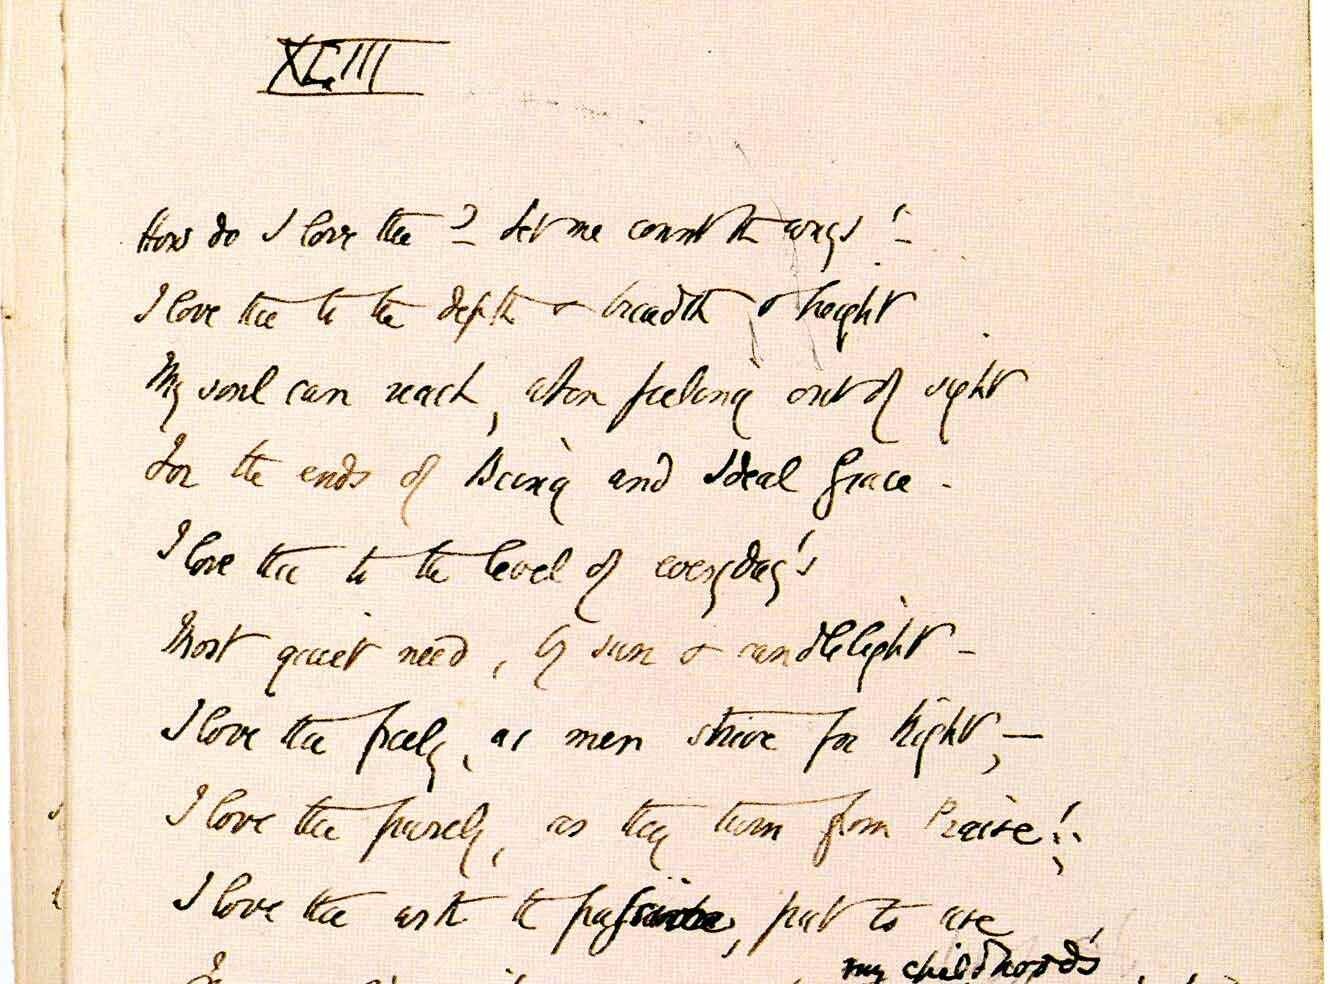 XLIII
How do I love thee? Let me count the ways!
I love thee to the depth & breadth & height
My soul can reach, when feeling out of sight
For the ends of Being and Ideal Grace.
I love thee to the level of everyday's
Most quiet need, by sun & candlelight -
I love thee freely, as men strive for Right, -
I love thee purely, as they turn from Praise!
I love thee with the passion, put to use
my childhood's